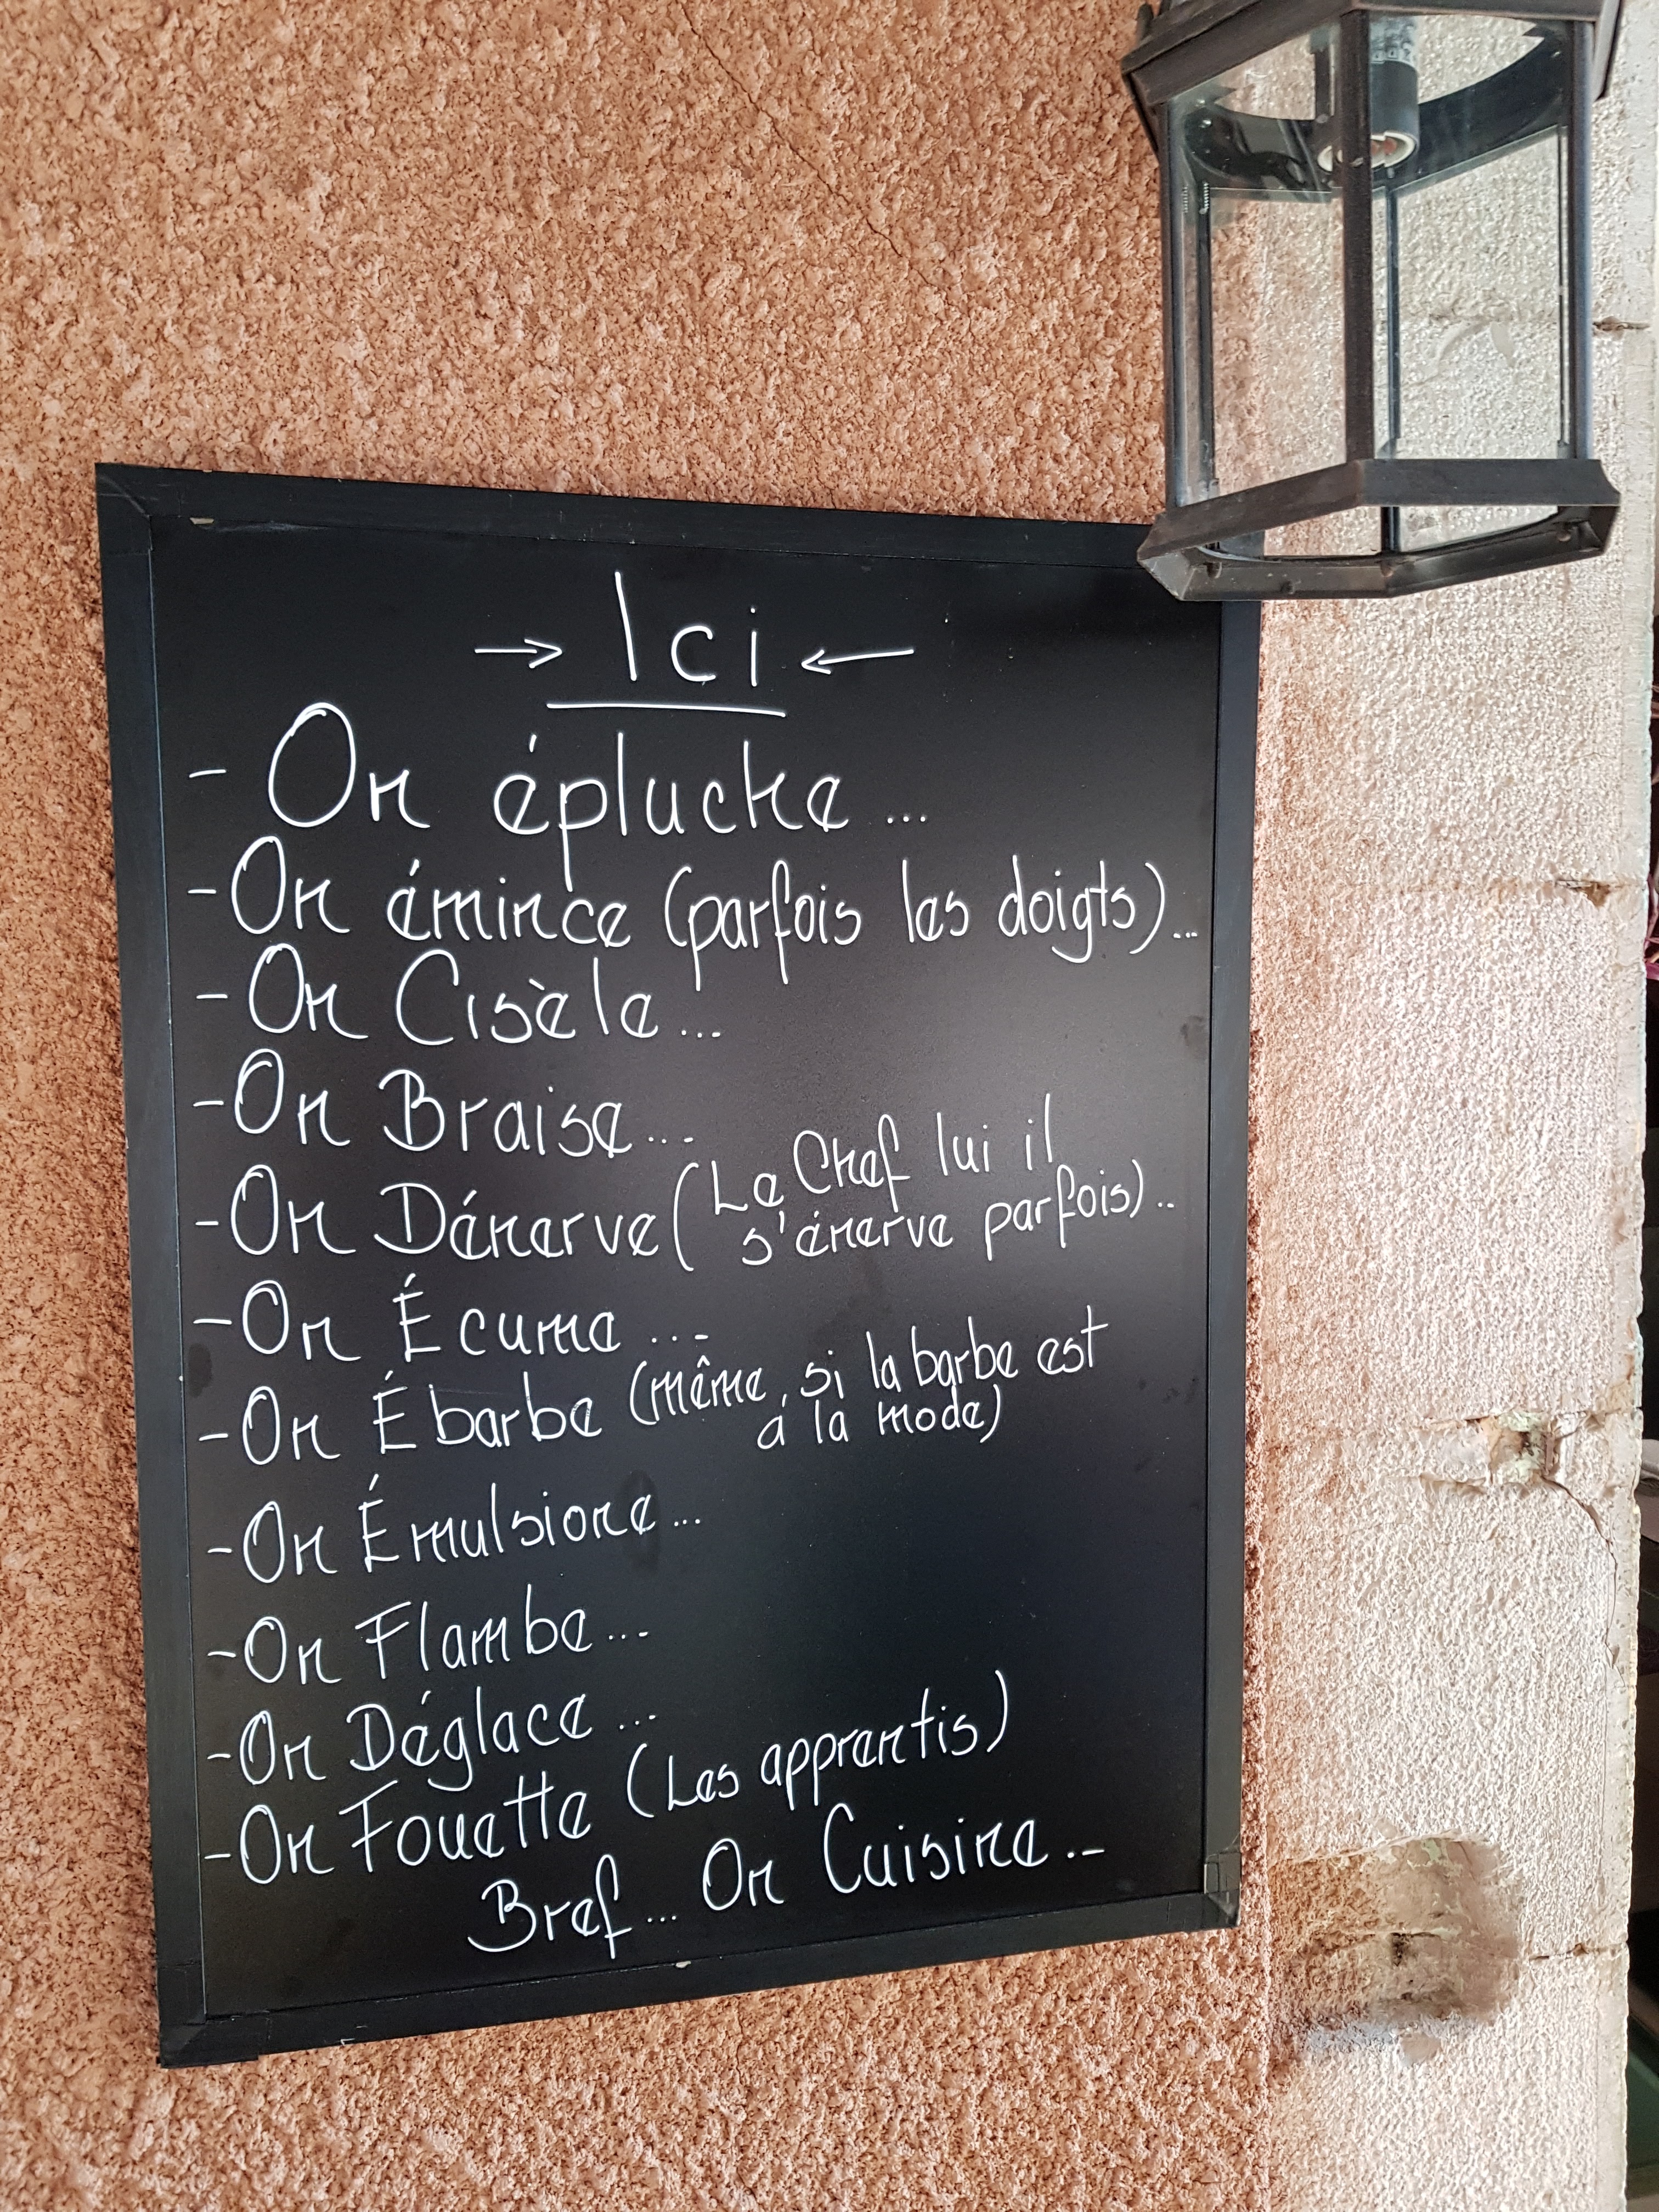 → Ici ←
- On épluche...
- On émince (parfois les doigts)...
- On Cisèle...
- On Braise...
- On Dénerve (Le Chef lui il
s'énerve parfois)..
- On Écume...
- On Ébarbe (même, si la barbe est
à la mode)
- On Émulsione...
- On Flambe...
- On Déglace...
- On Fouette (Les apprentis)
Bref... On Cuisine...